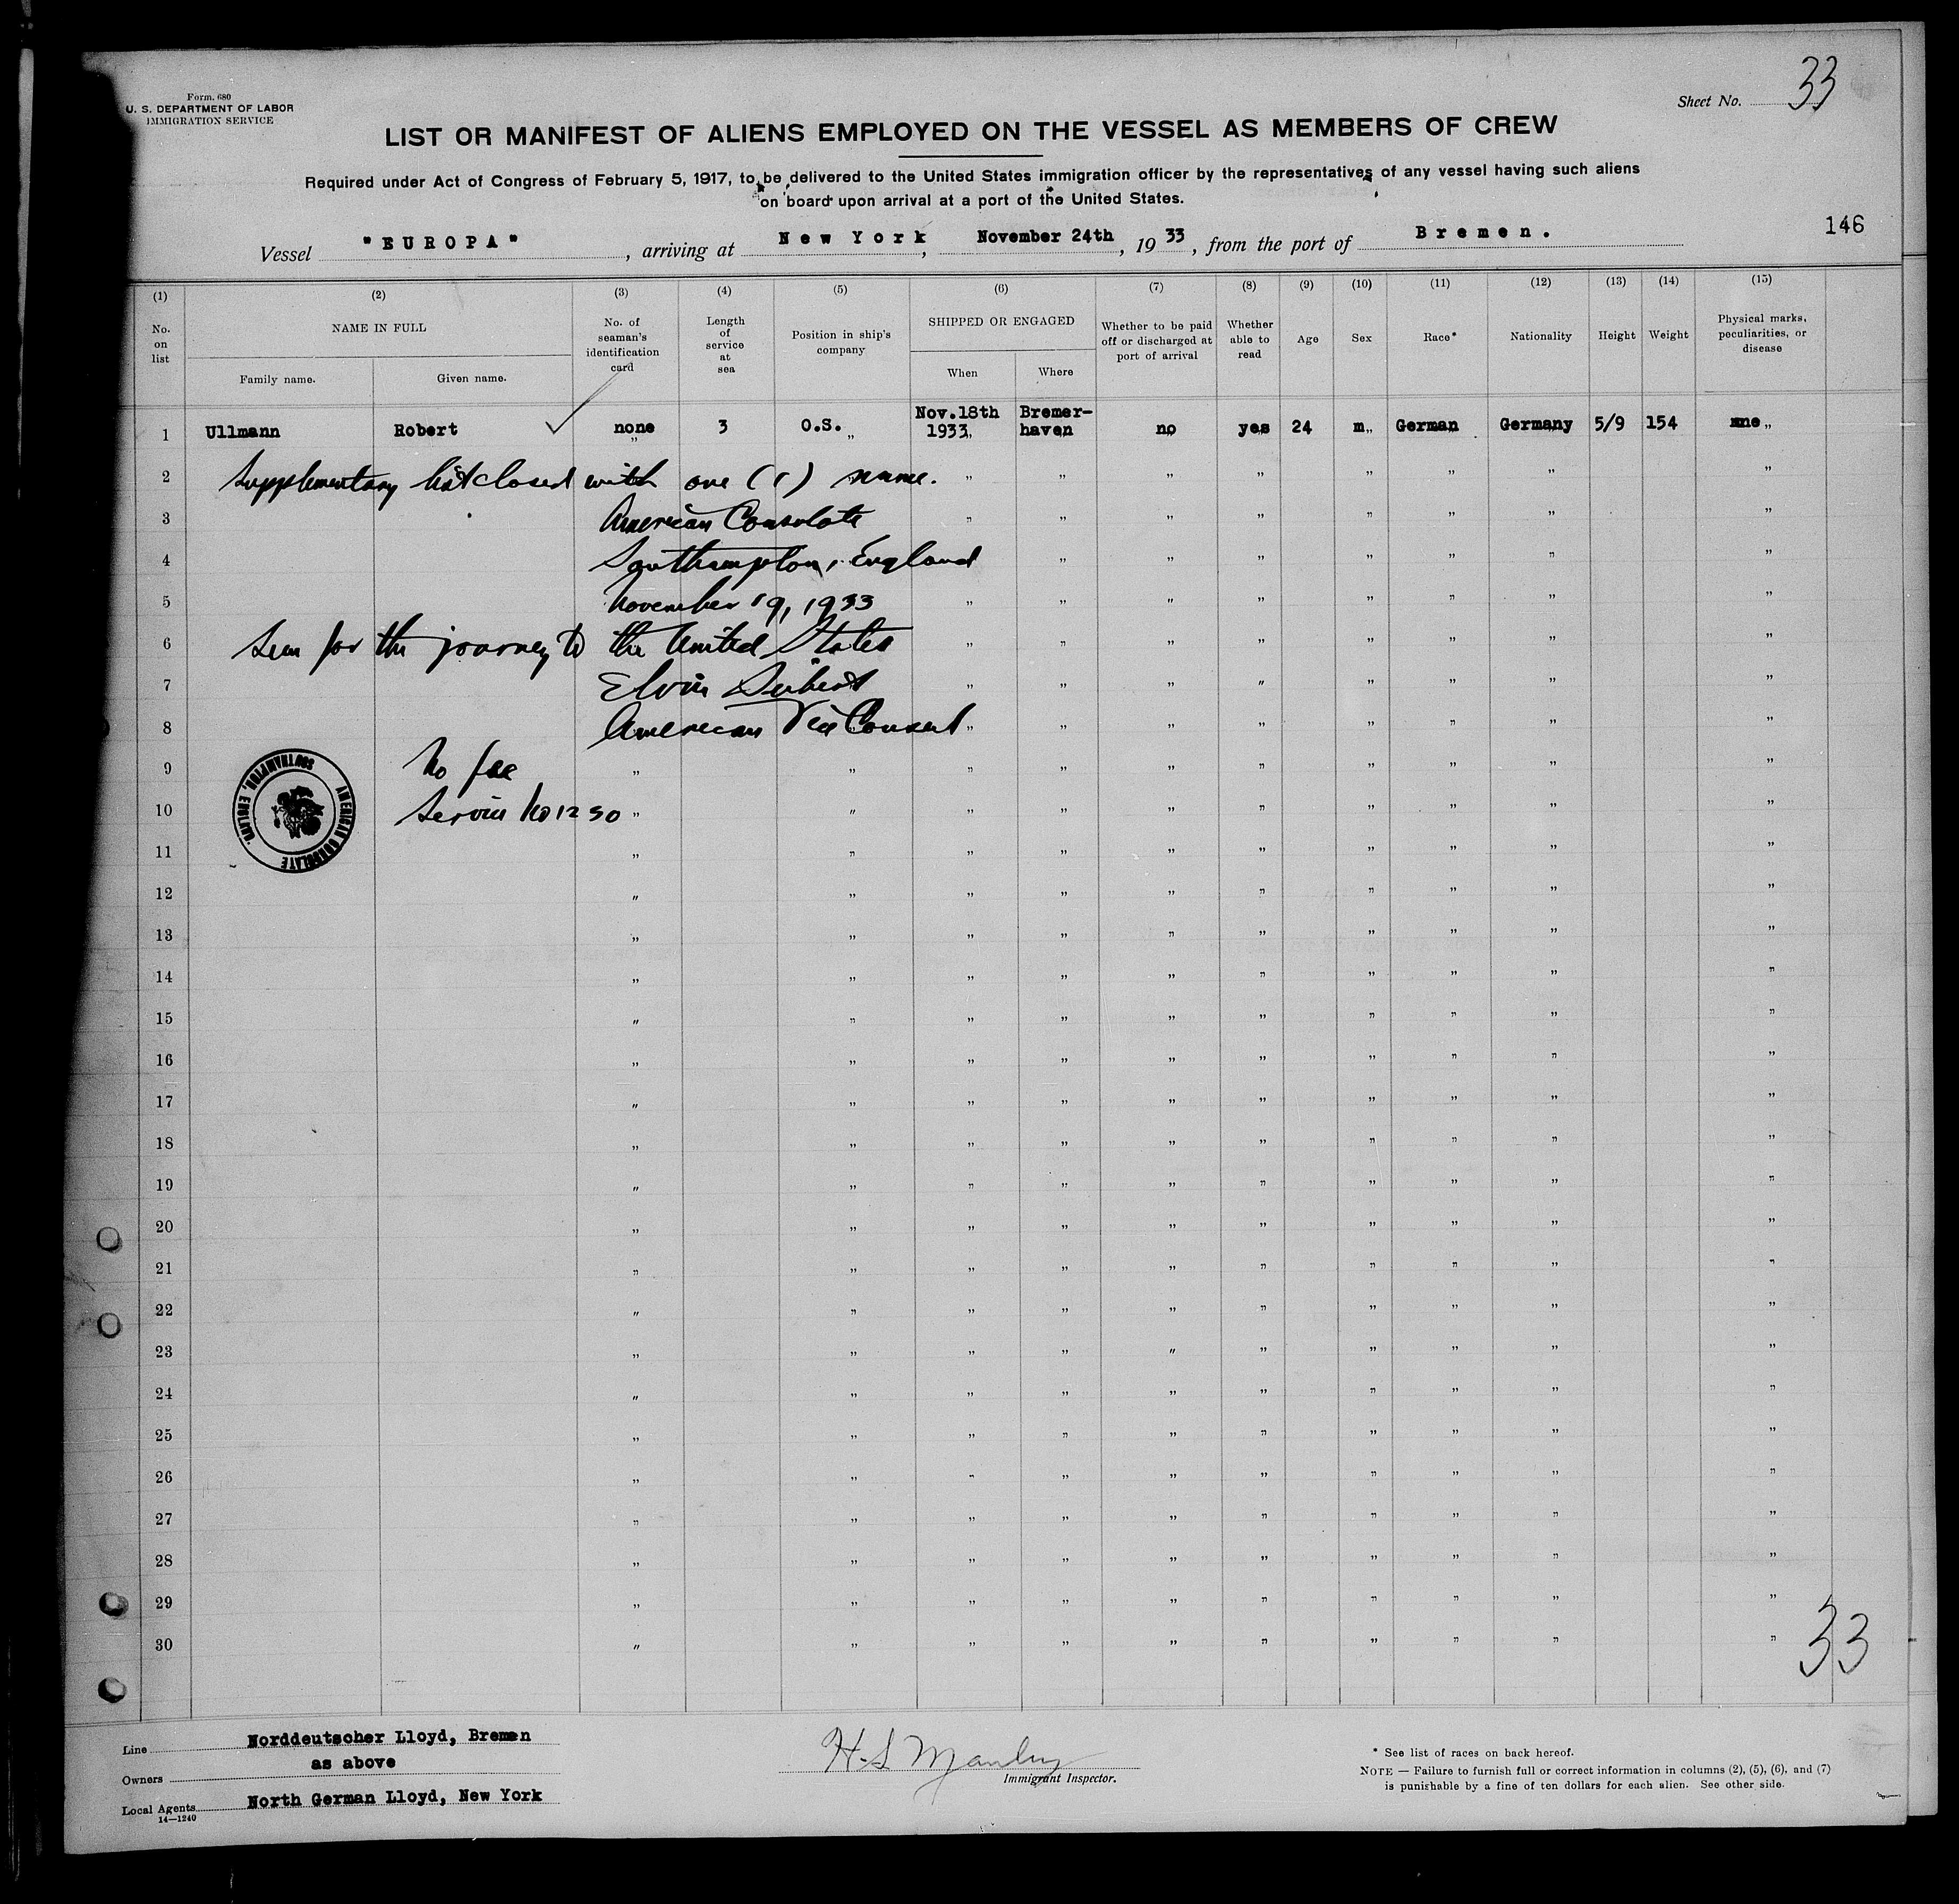 Form. 680
U. S. DEPARTMENT OF LABOR
IMMIGRATION SERVICE
Sheet No. 33
LIST OR MANIFEST OF ALIENS EMPLOYED ON THE VESSEL AS MEMBERS OF CREW
Required under Act of Congress of February 5, 1917, to be delivered to the United States immigration officer by the representatives of any vessel having such aliens
on board upon arrival at a port of the United States.
146
Vessel "EUROPA", arriving at New York, November 24th, 1933, from the port of Bremen.
(1) (2) (3) (4) (5) (6) (7) (8) (9) (10) (11) (12) (13) (14) (15)
No. on list NAME IN FULL No. of seaman's identification card Length of service at sea Position in ship's company SHIPPED OR ENGAGED Whether to be paid off or discharged at port of arrival Whether able to read Age Sex Race* Nationality Height Weight Physical marks, peculiarities, or disease
Family name. Given name. When Where
1 Ullmann Robert ✓ none „ 3 O.S. „ Nov.18th 1933 „ Bremer-haven „ no „ yes „ 24 m „ German „ Germany „ 5/9 154 „
2 Supplementary list closed with one (1) name. „ „ „ „ „ „ „ „
3 American Consulate „ „ „ „ „ „ „ „
4 Southampton, England „ „ „ „ „ „ „
5 November 19, 1933 „ „ „ „ „ „ „ „
6 Seen for the journey to the United States „ „ „ „ „ „ „ „
7 Elvin Seibert „ „ „ „ „ „ „ „
8 American Vice Consul „ „ „ „ „ „ „ „
9 No fee „ „ „ „ „ „ „ „ „ „
10 Service No 1250 „ „ „ „ „ „ „ „ „ „
AMERICAN CONSULATE
SOUTHAMPTON, ENGLAND.
11 „ „ „ „ „ „ „ „ „ „
12 „ „ „ „ „ „ „ „ „ „
13 „ „ „ „ „ „ „ „ „ „
14 „ „ „ „ „ „ „ „ „ „
15 „ „ „ „ „ „ „ „ „ „
16 „ „ „ „ „ „ „ „ „ „
17 „ „ „ „ „ „ „ „ „ „
18 „ „ „ „ „ „ „ „ „ „
19 „ „ „ „ „ „ „ „ „ „
20 „ „ „ „ „ „ „ „ „ „
21 „ „ „ „ „ „ „ „ „ „
22 „ „ „ „ „ „ „ „ „ „
23 „ „ „ „ „ „ „ „ „ „
24 „ „ „ „ „ „ „ „ „ „
25 „ „ „ „ „ „ „ „ „ „
26 „ „ „ „ „ „ „ „ „ „
27 „ „ „ „ „ „ „ „ „ „
28 „ „ „ „ „ „ „ „ „ „
29 „ „ „ „ „ „ „ „ „ „
30 „ „ „ „ „ „ „ „ „ „
33
Line Norddeutscher Lloyd, Bremen
Owners as above
Local Agents North German Lloyd, New York
14—1240
H. S. Manley
Immigrant Inspector.
* See list of races on back hereof.
NOTE — Failure to furnish full or correct information in columns (2), (5), (6), and (7)
is punishable by a fine of ten dollars for each alien. See other side.